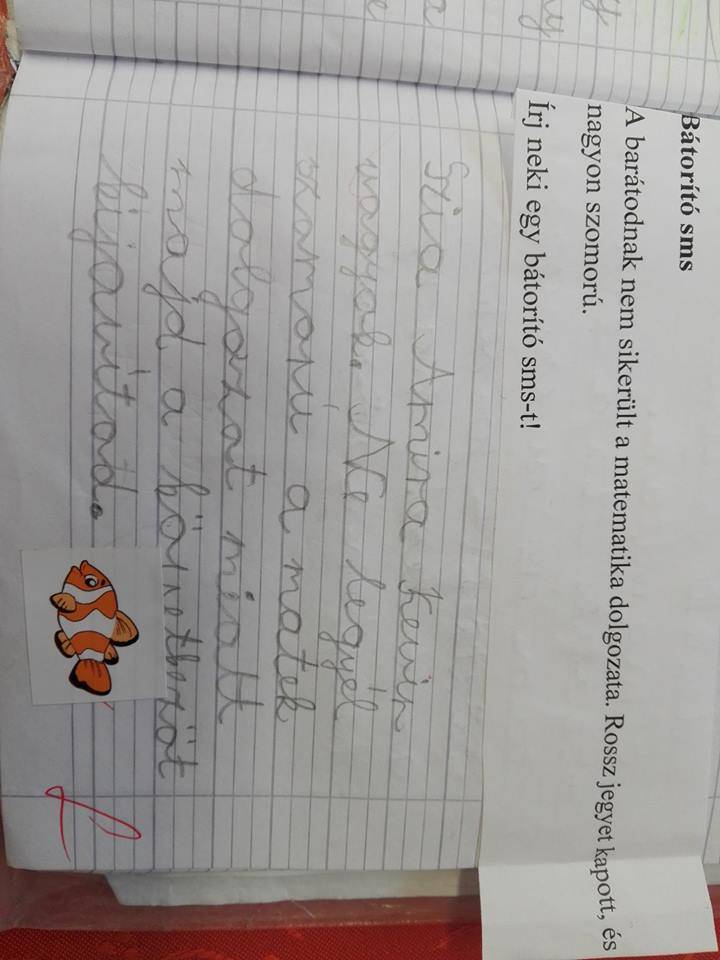 Bátorító sms
A barátodnak nem sikerült a matematika dolgozata. Rossz jegyet kapott, és
nagyon szomorú.
Írj neki egy bátorító sms-t!
Szia Amira Kevin
vagyok. Ne legyél
szomorú a matek
dolgozat miatt
majd a
kijavítod.